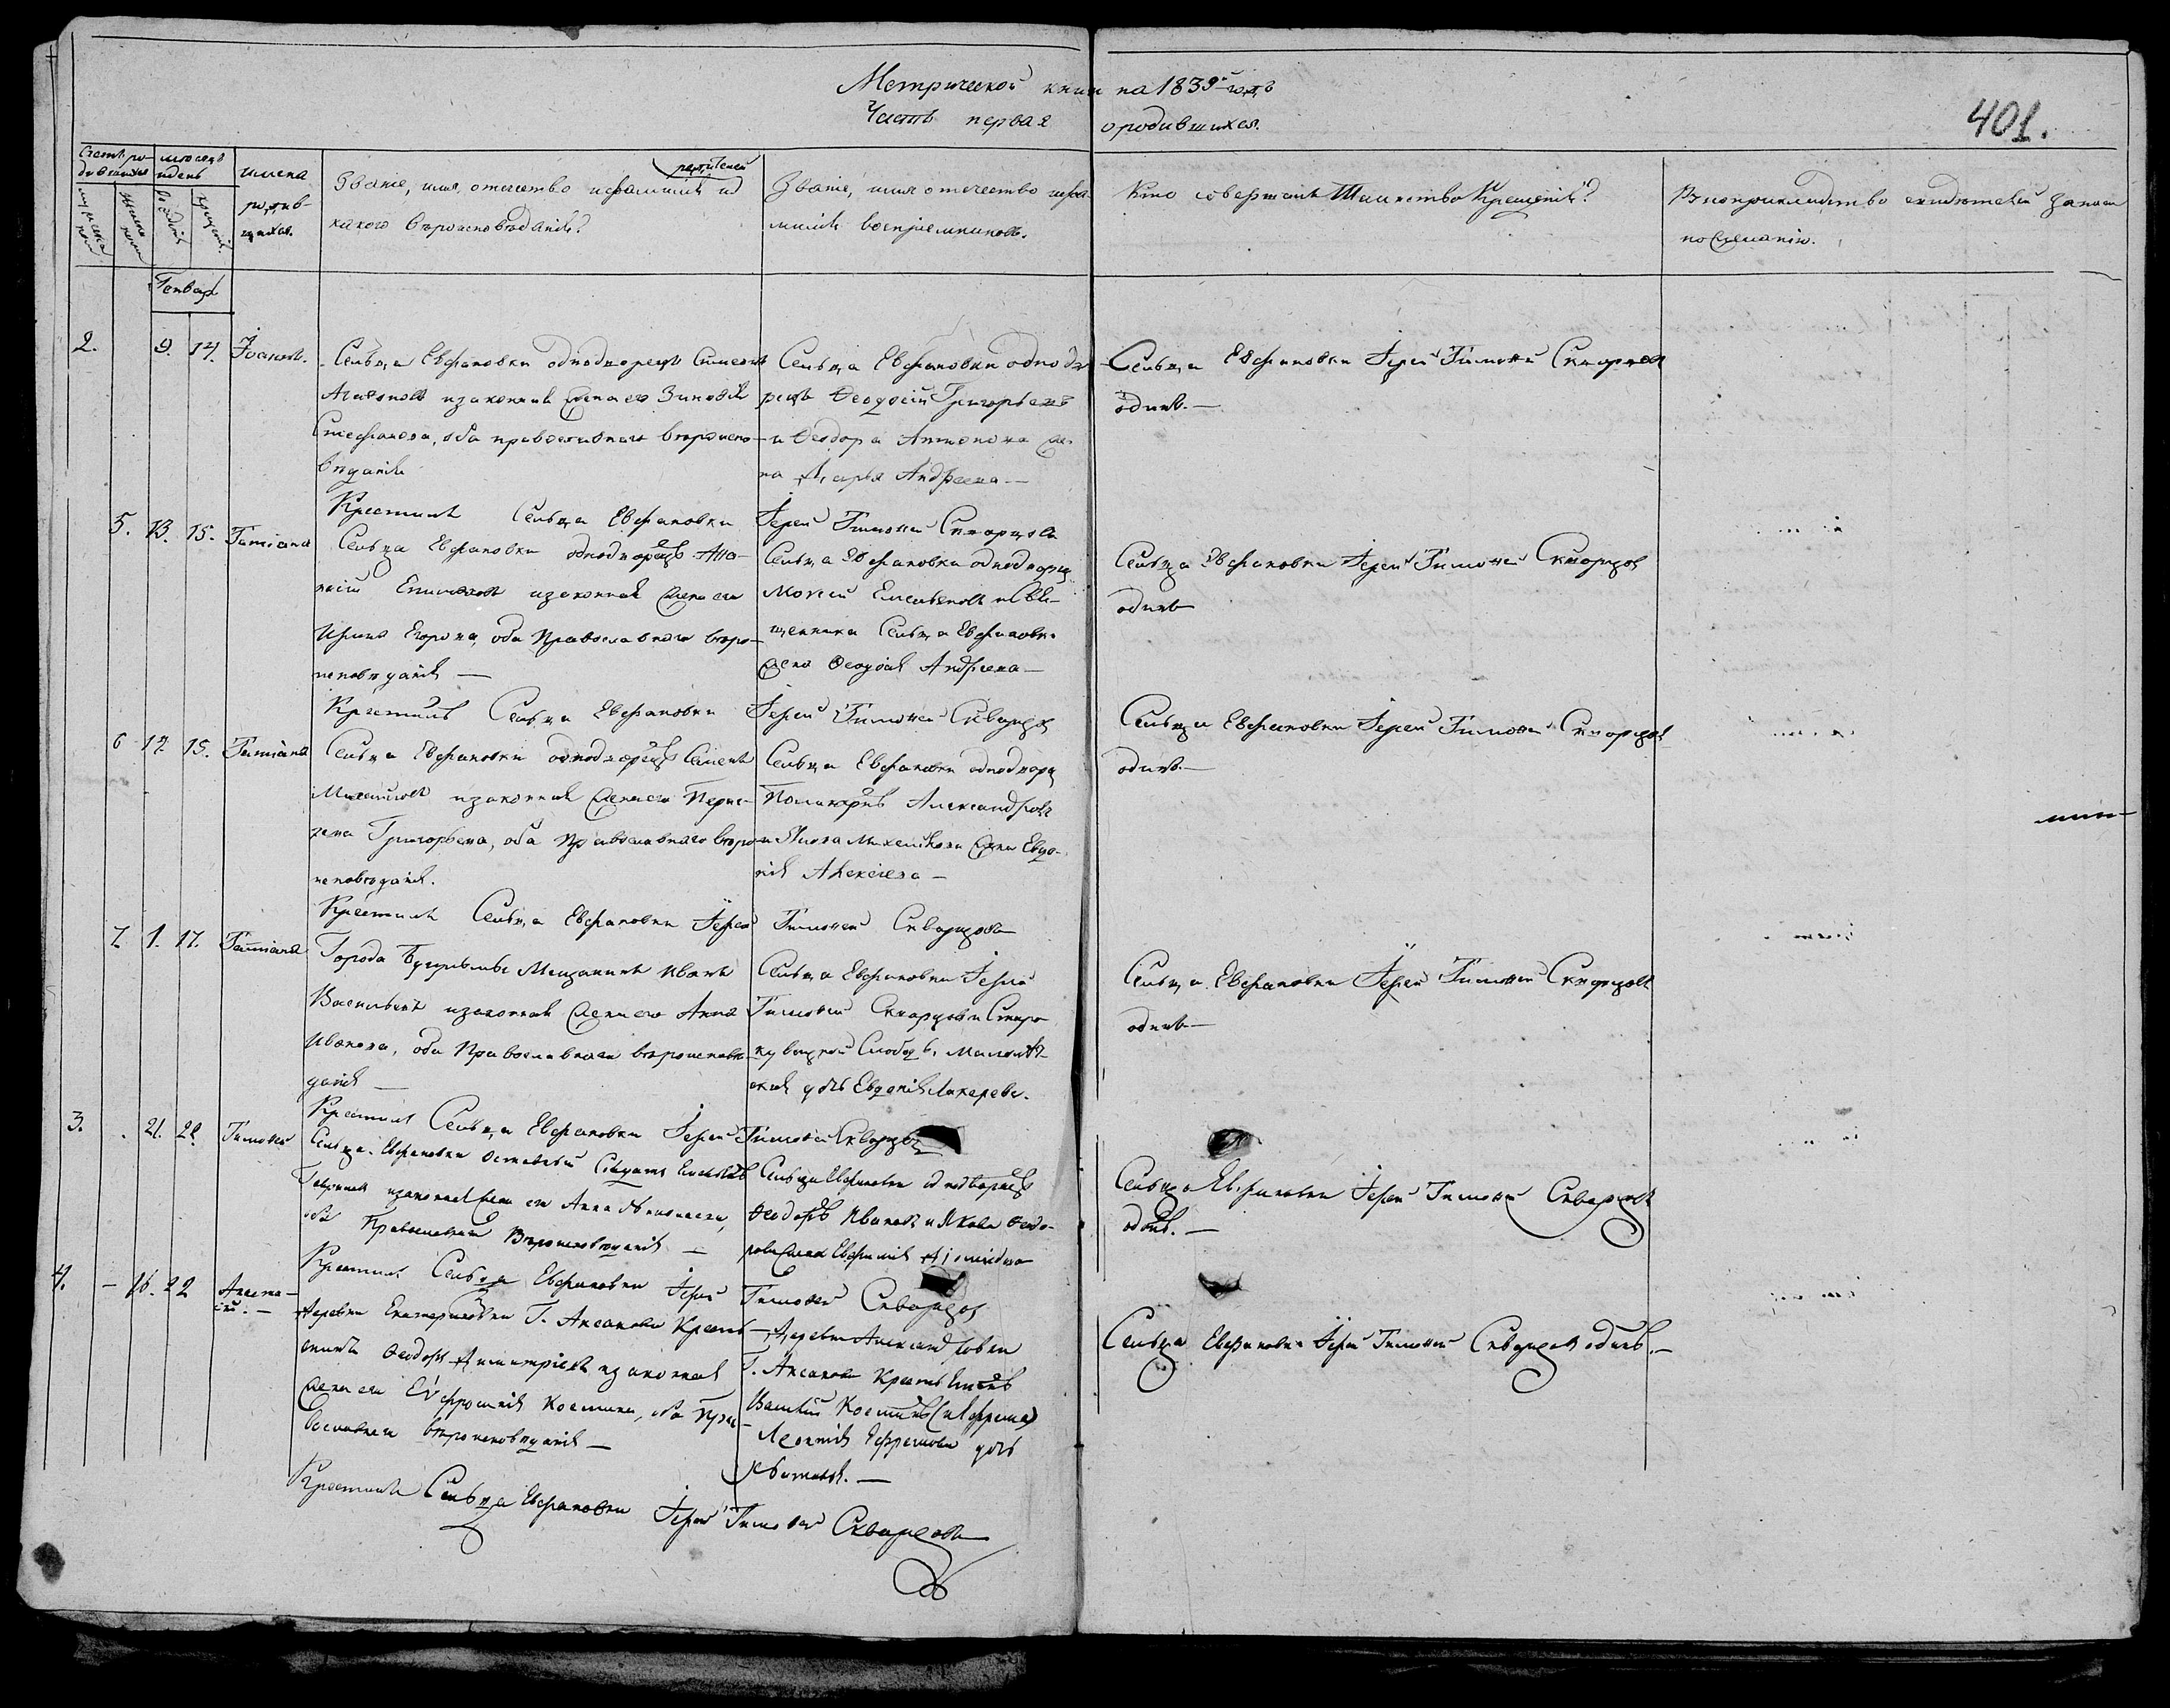 Метрической книги на 1839й годъ
Часть первая о родившихся.
401.
Счетъ ро-
дившихся
мѣсяцъ
и день
имена
родив-
шихся.
Званіе, имя, отечество и фамилія родителей и
какого вѣроисповѣданія?
Званіе, имя отечество и фа-
милія воспріемниковъ.
Кто совершалъ Таинство Крещенія?
Рукоприкладство свидѣтелей записи
по желанію.
мужеска
пола
женска
пола
рожденія
крещенія
Генварь
2. 9. 14. Іоаннъ.
Сельца Евфановки однодворецъ Симеонъ
Агаѳоновъ и законная жена его Зиновія
Стефанова, оба православнаго вѣроиспо-
вѣданія
Сельца Евфановки однодво
рецъ Ѳеодосій Григорьевъ
и Ѳеодора Антонова же-
на Дарья Андреева —
Сельца Евфановки Іерей Тимоѳей Скворцовъ
одинъ. —
Крестилъ Сельца Евфановки Іерей Тимоѳей Скворцовъ
5. 13. 15. Татіана
Сельца Евфановки однодворецъ Аѳа-
насій и законная жена его
Ирина Егорова, оба Православнаго вѣро-
исповѣданія —
Сельца Евфановки однодворец
Моисей Емельяновъ и свя-
щенника Сельца Евфановки
жена Ѳеодосія Андреева —
Сельца Евфановки Іерей Тимоѳей Скворцов
одинъ
Крестилъ Сельца Евфановки Іерей Тимоѳей Скворцов
6 14. 15. Татіана
Сельца Евфановки однодворецъ Семенъ
Михайловъ и законная жена его
Григорьева, оба Православнаго вѣро-
исповѣданія.
Сельца Евфановки однодворец
Поликарпъ Александров
и Якова Михайлова жена Евдо-
кія Алексѣева —
Сельца Евфановки Іерей Тимоѳей Скворцов
одинъ. —
Крестилъ Сельца Евфановки Іерей Тимоѳей Скворцовъ
7. 1. 17. Татіана
Города Бугульмы Мещанинъ Иванъ
Васильевъ и законная жена его Анна
Иванова, оба Православнаго вѣроисповѣ-
данія —
Сельца Евфановки Іерей
Тимоѳей Скворцовъ и Старо
кувацкой Слободы
дочь Евдокія Лазарева.
Сельца Евфановки Іерей Тимоѳей Скворцовъ
одинъ —
Крестилъ Сельца Евфановки Іерей Тимоѳей Скворцов
3. 21. 22. Тимоѳей
Сельца Евфановки Отставной Солдатъ
Гавриловъ и законная жена его Анна Аѳанасьева,
оба Православнаго Вѣроисповѣданія —
Сельца Евфановки однодворецъ
Ѳеодоръ Ивановъ и Якова Ѳеодо-
рова жена Евфимія
Сельца Евфановки Іерей Тимоѳей Скворцовъ
одинъ. —
Крестилъ Сельца Евфановки Іерей Тимоѳей Скворцов
4. — 16. 22 Анаста-
сій. —
Деревни Екатериновки Г. Аксакова Кресть-
янинъ Ѳеодоръ Димитріевъ и законная
жена его Евфросинія Костина, оба Пра-
вославнаго вѣроисповѣданія —
Деревни Александровки
Г. Аксакова Крестьянинъ
Василій Костинъ (и Ефрема)
Леонтія Ефремова дочь
Сельца Евфановки Іерей Тимоѳей Скворцовъ одинъ. —
Крестилъ Сельца Евфановки Іерей Тимоѳей Скворцовъ